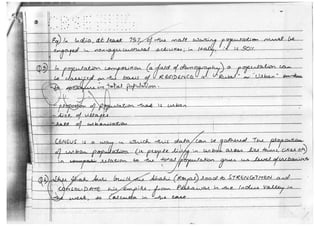 Eg) In India, at least 75% of the male working population must be
engaged in non-agricultural activities, in reality it is 50%.
Q3) In population composition (a field of demography) a population can
be classified on the basis of RESIDENCE as 'Rural' or 'Urban'
in total population.
- proportion of population that is urban
- size of villages
- rate of urbanisation
CENSUS is a way in which this data can be gathered. The proportion
of urban population (ie people living in urban areas like towns)
in relation to the total population gives us level of urbanisation
Sher Shah Suri built the Shahi (Royal) road to STRENGTHEN and
CONSOLIDATE his empire from Peshawar in the Indus Valley in
the west, to Calcutta in the east